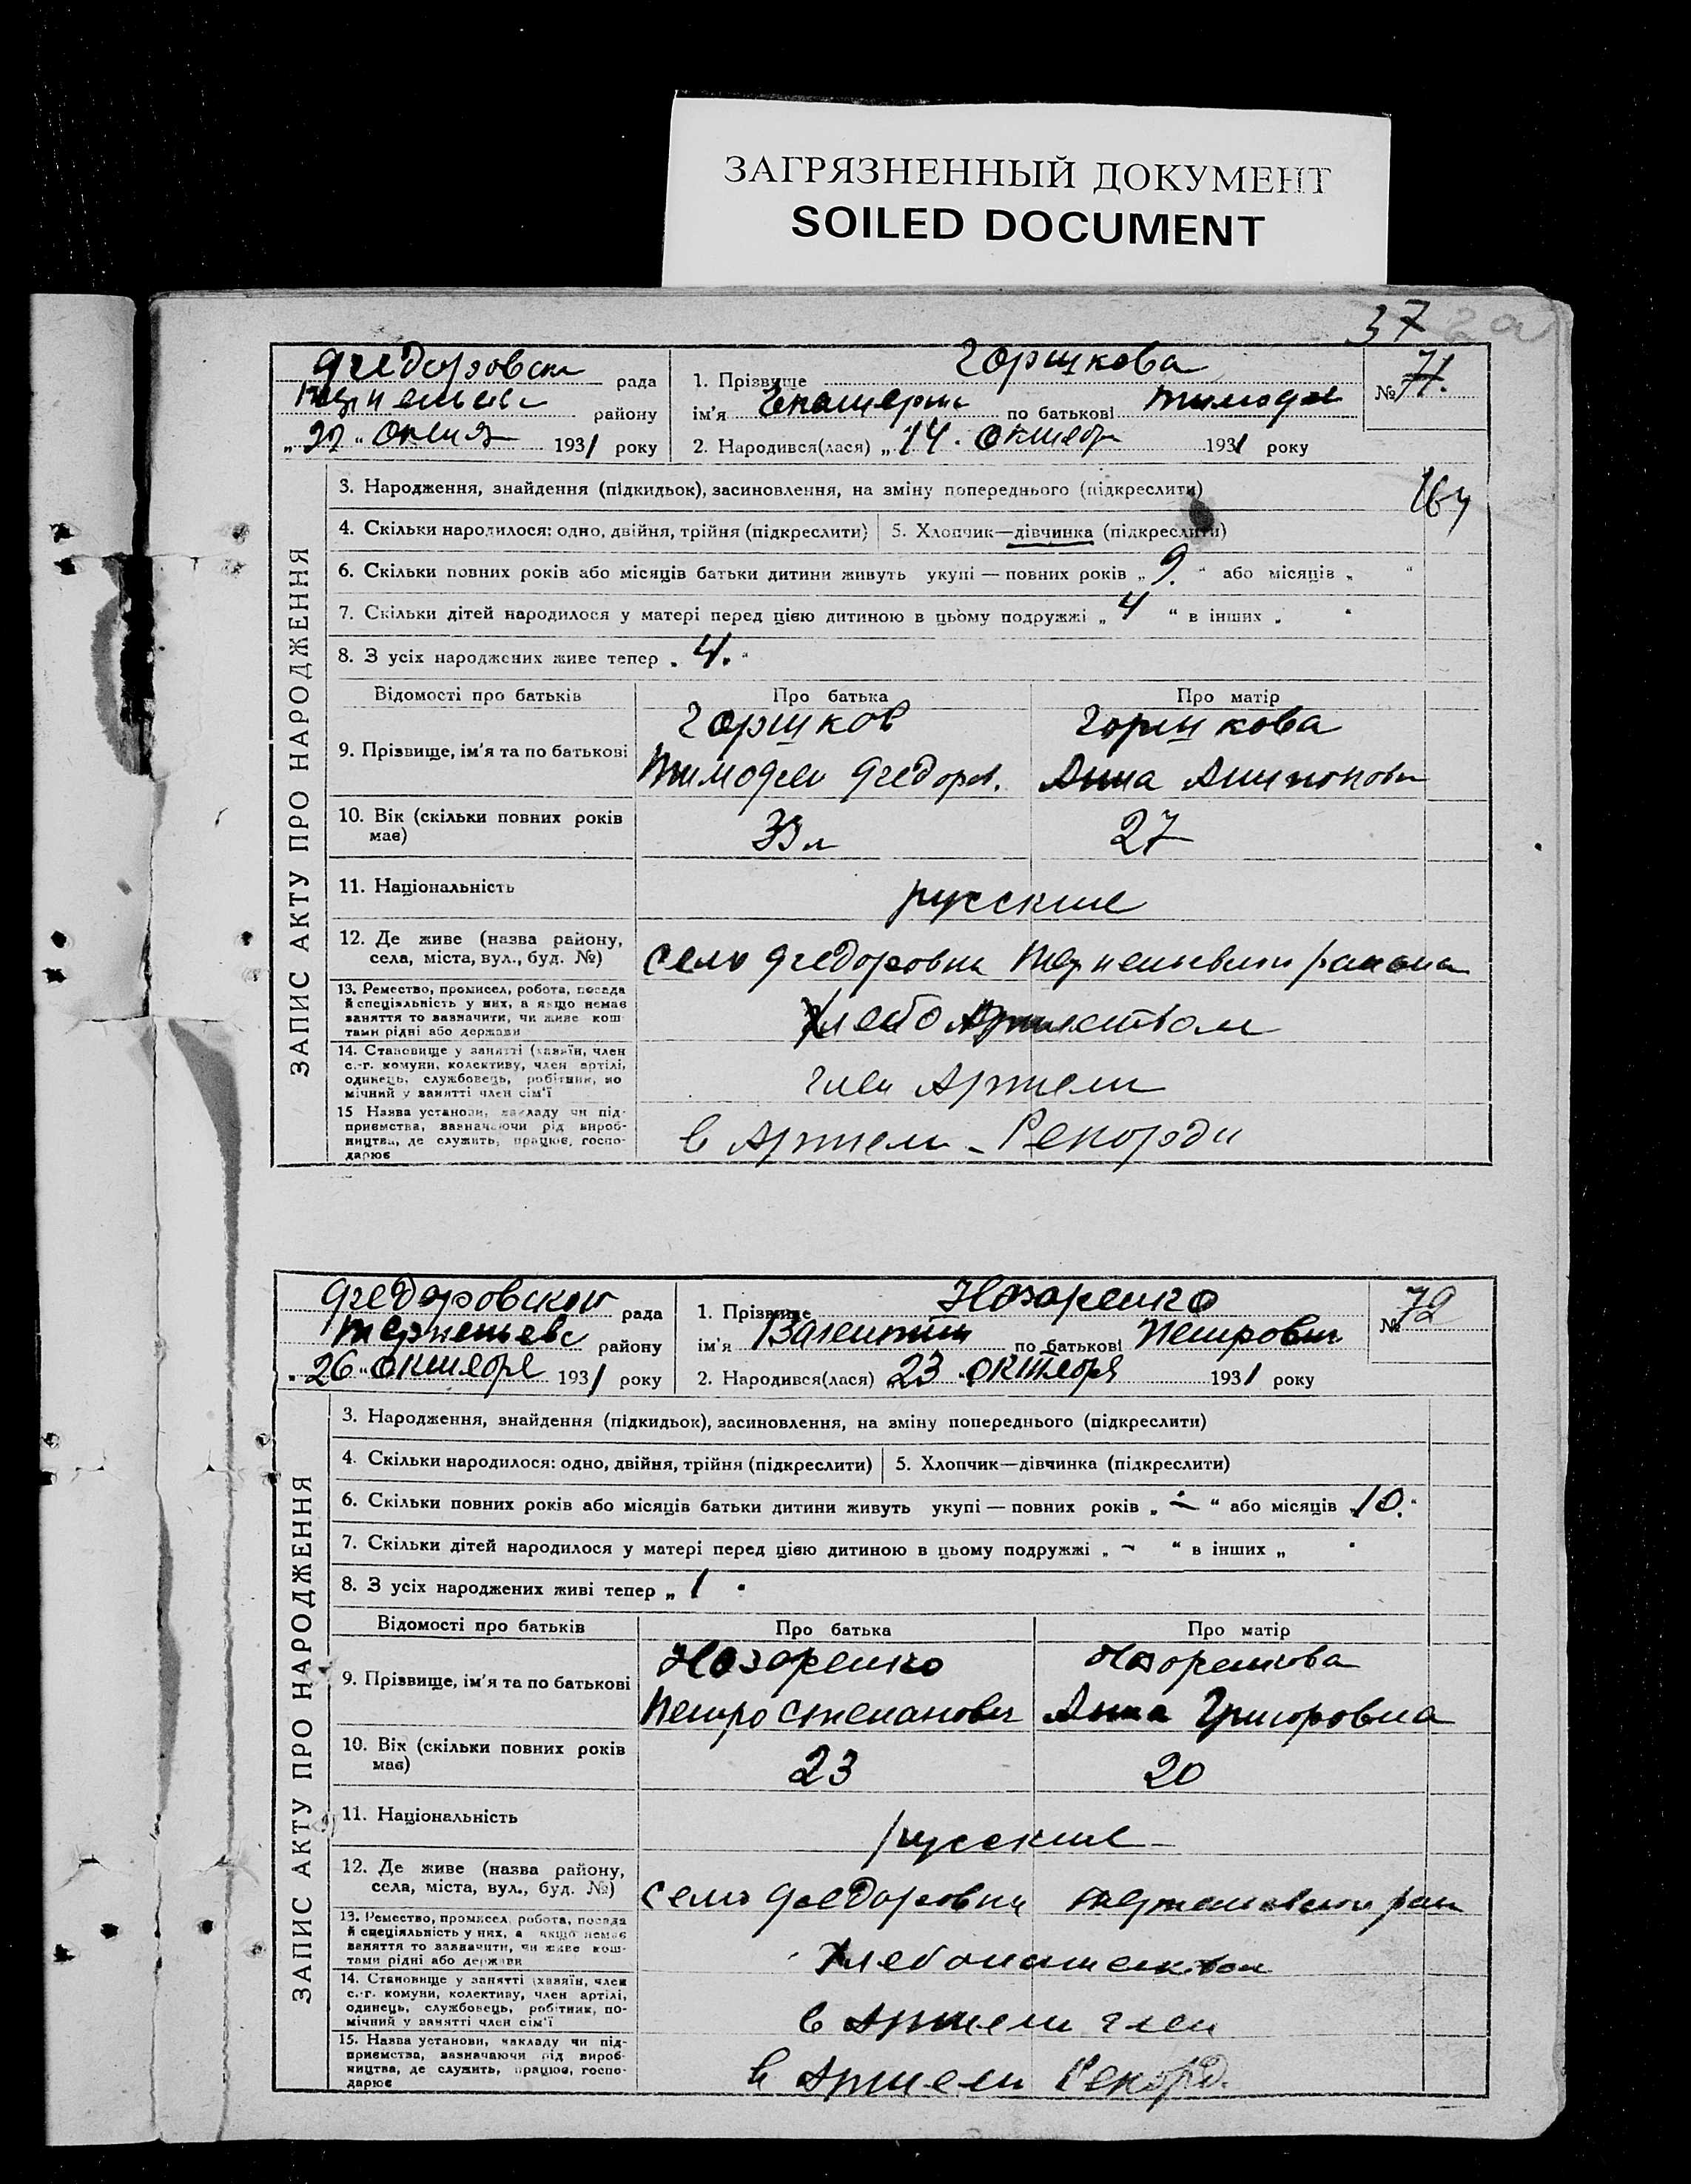 ЗАГРЯЗНЕННЫЙ ДОКУМЕНТ
SOILED DOCUMENT
37
рада
району
1931 року
1. Прізвище Горшкова
ім'я по батькові
2. Народився(лася) „14. 1931 року
№ 71.
3. Народження, знайдення (підкидьок), засиновлення, на зміну попереднього (підкреслити)
4. Скільки народилося: одно, двійня, трійня (підкреслити) 5. Хлопчик—дівчинка (підкреслити)
6. Скільки повних років або місяців батьки дитини живуть укупі — повних років „ 9. “ або місяців „ “
7. Скільки дітей народилося у матері перед цією дитиною в цьому подружжі „ 4 “ в інших „ “
8. З усіх народжених живе тепер „ 4. “
ЗАПИС АКТУ ПРО НАРОДЖЕННЯ
Відомості про батьків Про батька Про матір
Горшков Горшкова
9. Прізвище, ім'я та по батькові
Тимофеи Федоров. Анна
10. Вік (скільки повних років має)
27
11. Національність
русские
12. Де живе (назва району, села, міста, вул., буд. №)
село Федоровка
13. Ремество, промисел, робота, посада й спеціяльність у них, а якщо немає заняття то зазначити, чи живе коштами рідні або держави
14. Становище у занятті (хазяїн, член с.-г. комуни, колективу, член артілі, одинець, службовець, робітник, помічний у занятті член сім'ї
член Артели
15 Назва установи, закладу чи підприємства, зазначаючи рід виробництва, де служить, працює, господарює
в Артели - Рекорди
Федоровской рада
району
„26“ октября 1931 року
1. Прізвище Назаренко
ім'я Валентин по батькові Петрович
2. Народився(лася) 23 октября 1931 року
№ 72
3. Народження, знайдення (підкидьок), засиновлення, на зміну попереднього (підкреслити)
4. Скільки народилося: одно, двійня, трійня (підкреслити) 5. Хлопчик—дівчинка (підкреслити)
6. Скільки повних років або місяців батьки дитини живуть укупі — повних років „ – “ або місяців „10.“
7. Скільки дітей народилося у матері перед цією дитиною в цьому подружжі „ – “ в інших „ “
8. З усіх народжених живі тепер „ 1 “
ЗАПИС АКТУ ПРО НАРОДЖЕННЯ
Відомості про батьків Про батька Про матір
Назаренко
9. Прізвище, ім'я та по батькові
Петро Степанович Анна Григоровна
10. Вік (скільки повних років має)
23 20
11. Національність
русские
12. Де живе (назва району, села, міста, вул., буд. №)
село Федоровки
13. Ремество, промисел, робота, посада й спеціяльність у них, а якщо немає заняття то зазначити, чи живе коштами рідні або держави
14. Становище у занятті (хазяїн, член с.-г. комуни, колективу, член артілі, одинець, службовець, робітник, помічний у занятті член сім'ї
в Артели член
15. Назва установи, закладу чи підприємства, зазначаючи рід виробництва, де служить, працює, господарює
в Артели Рекорд.